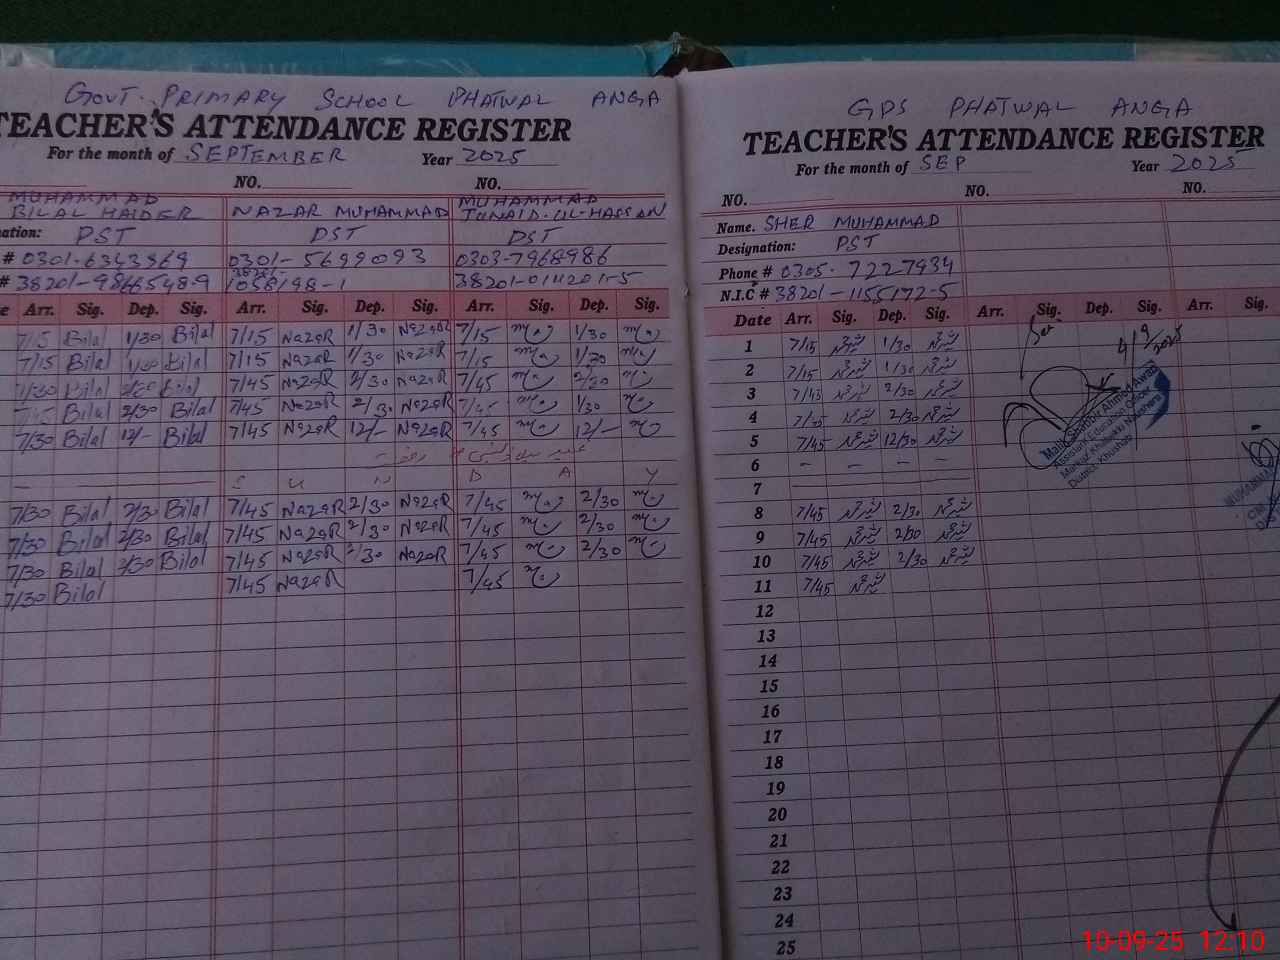 GOVT. PRIMARY SCHOOL PHATWAL ANGA
TEACHER'S ATTENDANCE REGISTER
For the month of SEPTEMBER Year 2025
NO. NO.
MUHAMMAD BILAL HAIDER NAZAR MUHAMMAD MUHAMMAD JUNAID-UL-HASSAN
ation: PST PST PST
# 0301-6343869 0301-5699093 0303-7968986
# 38201-9866548-9 38201-1058198-1
Arr. Sig. Dep. Sig. Arr. Sig. Dep. Sig. Arr. Sig. Dep. Sig.
7/15 Bilal 1/30 Bilal 7/15 NazaR 1/30 NazaR 7/15 1/30
7/15 Bilal Bilal 7/15 NazaR 1/30 NazaR 7/15 1/30
7/30 Bilal 2/30 Bilal 7/45 NazaR 2/30 NazaR 7/45 2/30
Bilal 2/30 Bilal 7/45 NazaR 2/30 NazaR 7/45 1/30
7/30 Bilal 12/- Bilal 7/45 NazaR 12/- NazaR 7/45 12/-
S U N D A Y
7/30 Bilal 2/30 Bilal 7/45 NazaR 2/30 NazaR 7/45 2/30
7/30 Bilal 2/30 Bilal 7/45 NazaR 2/30 NazaR 7/45 2/30
7/30 Bilal 2/30 Bilal 7/45 NazaR 2/30 NazaR 7/45 2/30
7/30 Bilal 7/45 NazaR 7/45
GPS PHATWAL ANGA
TEACHER'S ATTENDANCE REGISTER
For the month of SEP Year 2025
NO. NO. NO.
Name. SHER MUHAMMAD
Designation: PST
Phone # 0305-7227934
N.I.C # 38201-1155172-5
Date Arr. Sig. Dep. Sig. Arr. Sig. Dep. Sig. Arr. Sig.
1 7/15 1/30
2 7/15 1/30
3 7/45 2/30
4 7/45 2/30
5 7/45 12/30
6 - - - -
7
8 7/45 2/30
9 7/45 2/30
10 7/45 2/30
11 7/45
12
13
14
15
16
17
18
19
20
21
22
23
24
25
4/9/2025
Malik Shabbir Ahmad Awan
Assistant Education Officer
Markaz Khabakki Naushera
District Khushab
10-09-25 12:10